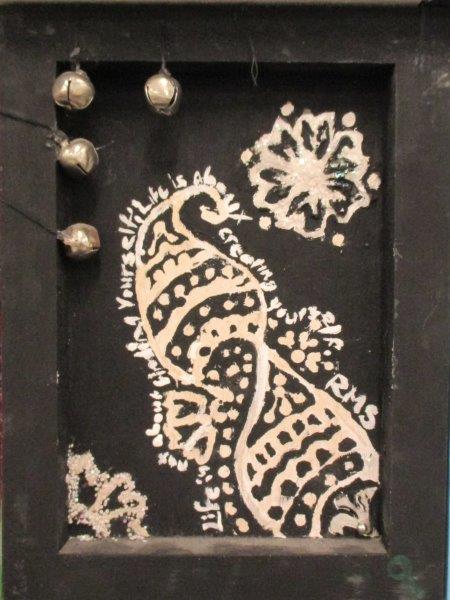 Life isn't about finding yourself.
Life is About creating yourself.
RMS